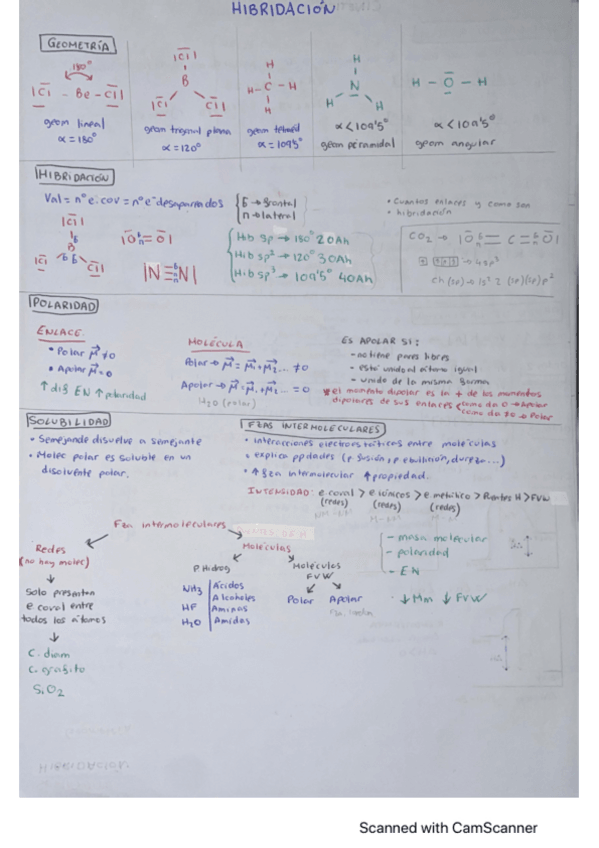 HIBRIDACIÓN
GEOMETRÍA
180°
|Cl| - Be - Cl|
geom lineal
α = 180°
|Cl|
B
|Cl Cl|
geom trigonal plana
α = 120°
H
H - C - H
H
geom tetraéd
α = 109'5°
H
N
H H
α < 109'5°
geom piramidal
H - O - H
α < 109'5°
geom angular
HIBRIDACIÓN
Val = nº e⁻ cov = nº e⁻ desapareados
б → frontal
π → lateral
• Cuantos enlaces y como son
• hibridación
|Cl|
б
B
б б
|Cl Cl|
|O = O|
|N ≡ N|
Hib sp → 180° 2OAh
Hib sp² → 120° 3OAh
Hib sp³ → 109'5° 4OAh
CO₂ → |O = C = O|
POLARIDAD
ENLACE
• Polar μ ≠ 0
• Apolar μ = 0
↑ dif EN ↑ polaridad
MOLÉCULA
Polar → μ = μ₁ + μ₂... ≠ 0
Apolar → μ = μ₁ + μ₂... = 0
H₂O (polar)
ES APOLAR SI:
- no tiene pares libres
- esté unido al átomo igual
- unido de la misma forma
* el momento dipolar es la + de los momentos
dipolares de sus enlaces (como da 0 → Apolar
como da ≠0 → Polar
SOLUBILIDAD
• Semejande disuelve a semejante
• Molec polar es soluble en un
disolvente polar.
FZAS INTERMOLECULARES
• interacciones electrostáticas entre moléculas
• explica ppdades (p. fusión, p ebullición, dureza...)
• ↑ fza intermolecular ↑ propiedad.
INTENSIDAD: e coval > e iónicos > e metálico > Puentes H > FVW
(redes) (redes) (redes)
Fza intermoleculares
Redes
(no hay molec)
Solo presentan
e coval entre
todos los átomos
C. diam
C. grafito
SiO₂
Moléculas
P. Hidrog
NH₃
HF
H₂O
Ácidos
Alcoholes
Aminas
Amidas
Moléculas
FVW
Polar Apolar
- masa molecular
- polaridad
- EN
↓ Mm ↓ FVW
Scanned with CamScanner